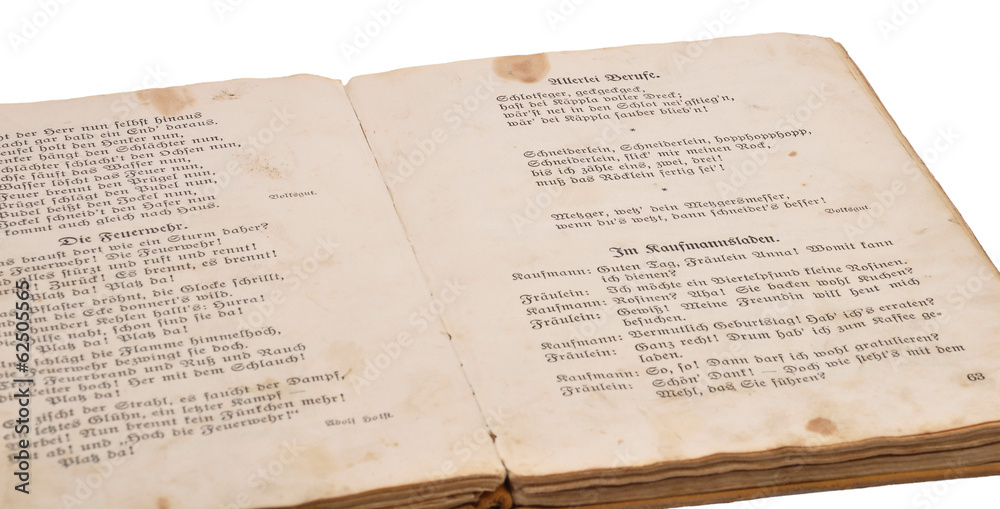 der Herr nun selbst hinaus
gar bald ein End' daraus.
holt den Henker nun,
hängt den Schlächter nun,
Schlächter schlacht't den Ochsen nun,
säuft das Wasser nun,
Wasser löscht das Feuer nun,
Feuer brennt den Prügel nun,
Prügel schlägt den Pudel nun,
Pudel beißt den Jockel nun,
Jockel schneid't den Hafer nun
kommt auch gleich nach Haus.
Volksgut.
Die Feuerwehr.
braust dort wie ein Sturm daher?
Feuerwehr! Die Feuerwehr!
alles stürzt und ruft und rennt!
Zurück! Es brennt, es brennt!
Platz da! Platz da!
dröhnt, die Glocke schrillt,
um die Ecke donnert's wild.
hundert Kehlen hallt's: Hurra!
naht, schon sind sie da!
Platz da! Platz da!
schlägt die Flamme himmelhoch,
Feuerwehr bezwingt sie doch.
Feuerbrand und Ruß und Rauch
hoch! Her mit dem Schlauch!
Platz da!
zischt der Strahl, es faucht der Dampf,
letztes Glühn, ein letzter Kampf —
Nun brennt kein Fünkchen mehr!
ab! und „Hoch die Feuerwehr!“
Platz da!
Adolf Holst.
Allerlei Berufe.
Schlotfeger, geckgeckgeck,
hast dei Käppla voller Dreck;
wär'st net in den Schlot nei'gstieg'n,
wär' dei Käppla sauber blieb'n!
*
Schneiderlein, Schneiderlein, hopphopphopp,
Schneiderlein, flick' mir meinen Rock,
bis ich zähle eins, zwei, drei!
muß das Röcklein fertig sei'!
*
Metzger, wetz' dein Metzgersmesser,
wenn du's wetzt, dann schneidet's besser!
Volksgut.
Im Kaufmannsladen.
Kaufmann: Guten Tag, Fräulein Anna! Womit kann
ich dienen?
Fräulein: Ich möchte ein Viertelpfund kleine Rosinen.
Kaufmann: Rosinen? Aha! Sie backen wohl Kuchen?
Fräulein: Gewiß! Meine Freundin will heut mich
besuchen.
Kaufmann: Vermutlich Geburtstag! Hab' ich's erraten?
Fräulein: Ganz recht! Drum hab' ich zum Kaffee ge-
laden.
Kaufmann: So, so! Dann darf ich wohl gratulieren?
Fräulein: Schön' Dank! — Doch wie steht's mit dem
Mehl, das Sie führen?
63
Adobe Stock | #62505565